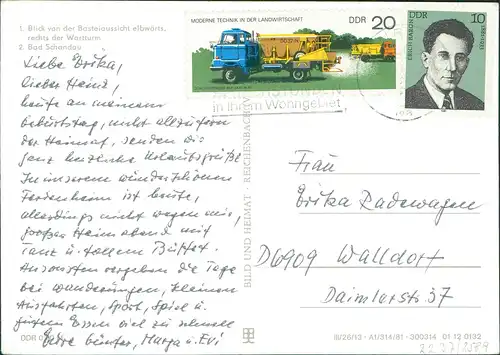 1. Blick von der Basteiaussicht elbwärts,
rechts der Wartturm
2. Bad Schandau
MODERNE TECHNIK IN DER LANDWIRTSCHAFT
DDR 20
DDR 10
ERICH BARON
1881-1933
in Ihrem Wohngebiet
Liebe Erika,
lieber Heinz,
heute an meinem
Geburtstag, nicht allzufern
der Heimat, senden wir
ganz herzliche Urlaubsgrüße.
In unserem wunderschönen
Ferienheim ist heute,
allerdings nicht wegen mir,
großer Heimabend mit
Tanz u. tollem Büffet.
Ansonsten vergehen die Tage
bei Wanderungen, kleinen
Ausfahrten, Sport, Spiel u.
gutem Essen viel zu schnell
Eure Günter, Marga u. Evi
BILD UND HEIMAT · REICHENBACH (V)
Frau
Erika Radewagen
D6909 Walldorf
Daimlerstr. 37
DDR
III/26/13 · A1/314/81 · 300314 01 12 0132